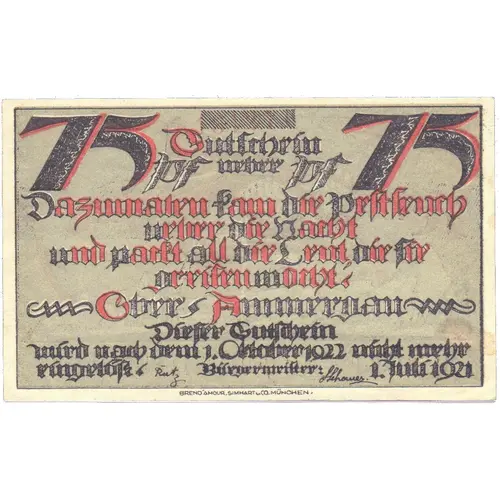 75 Gutschein 75
Pf ueber Pf
Dazumalen kam die Pestseuch
ueber die Nacht
und packt all die Leut die sie
greifen mocht.
Ober-Ammergau
Dieser Gutschein
wird nach dem 1. Oktober 1922 nicht mehr
eingelöst. Rutz Bürgermeister: 1. Juli 1921
BREND'AMOUR, SIMHART & CO. MÜNCHEN.